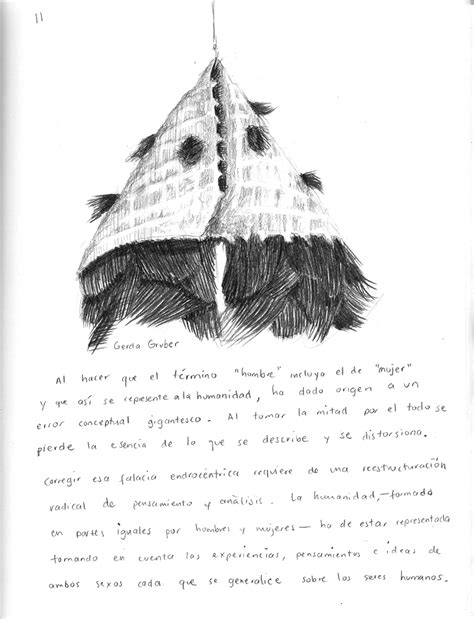 11
Gerda Gruber
Al hacer que el término "hombre" incluya el de "mujer"
y que así se represente a la humanidad, ha dado origen a un
error conceptual gigantesco. Al tomar la mitad por el todo se
pierde la esencia de lo que se describe y se distorsiona.
Corregir esa falacia endrocéntrica requiere de una reestructuración
radical de pensamiento y análisis. La humanidad, —formada
en partes iguales por hombres y mujeres— ha de estar representada
tomando en cuenta las experiencias, pensamientos e ideas de
ambos sexos cada que se generalice sobre los seres humanos.